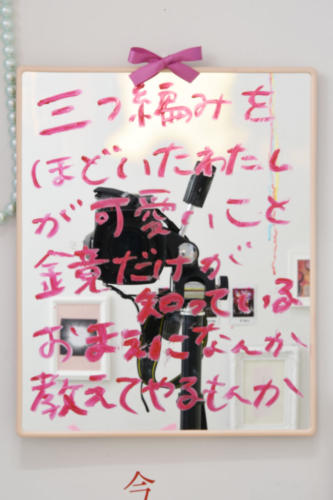 三つ編みを
ほどいたわたし
が可愛いこと
鏡だけが
知っている
おまえになんか
教えてやるもんか
今